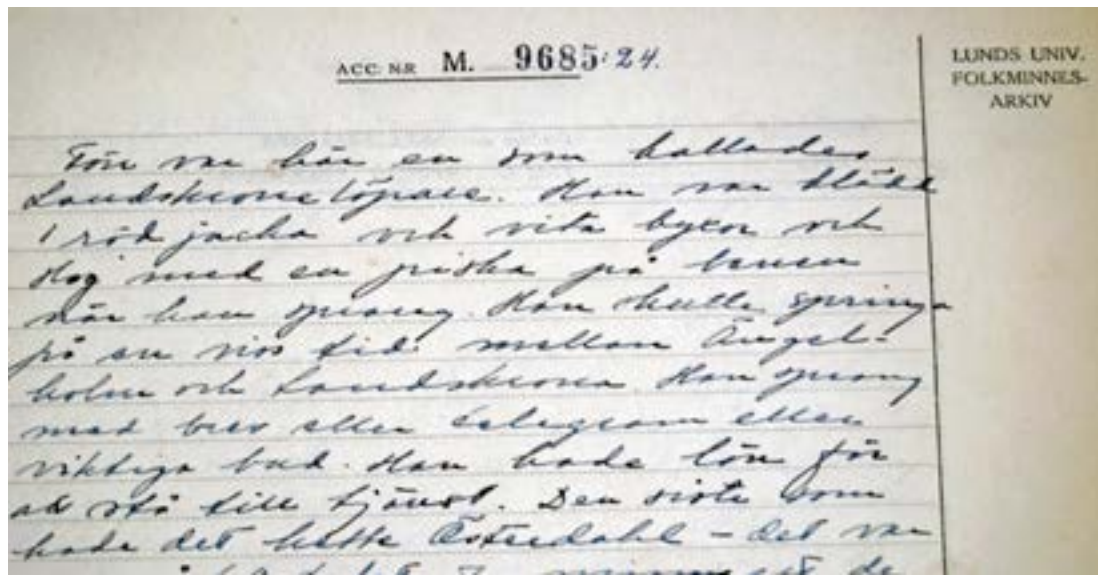 ACC. N:R M. 9685:24.
LUNDS UNIV.
FOLKMINNES-
ARKIV
Förr var här en som kallades
Landskrona löpare. Han var klädd
i röd jacka och vita byxor och
slog med en piska på benen
när han sprang. Han skulle springa
på en viss tid mellan Ängel-
holm och Landskrona. Han sprang
med brev eller telegram eller
viktiga bud. Han hade lön för
att stå till tjänst. Den siste som
hade det hette Österdahl – det var